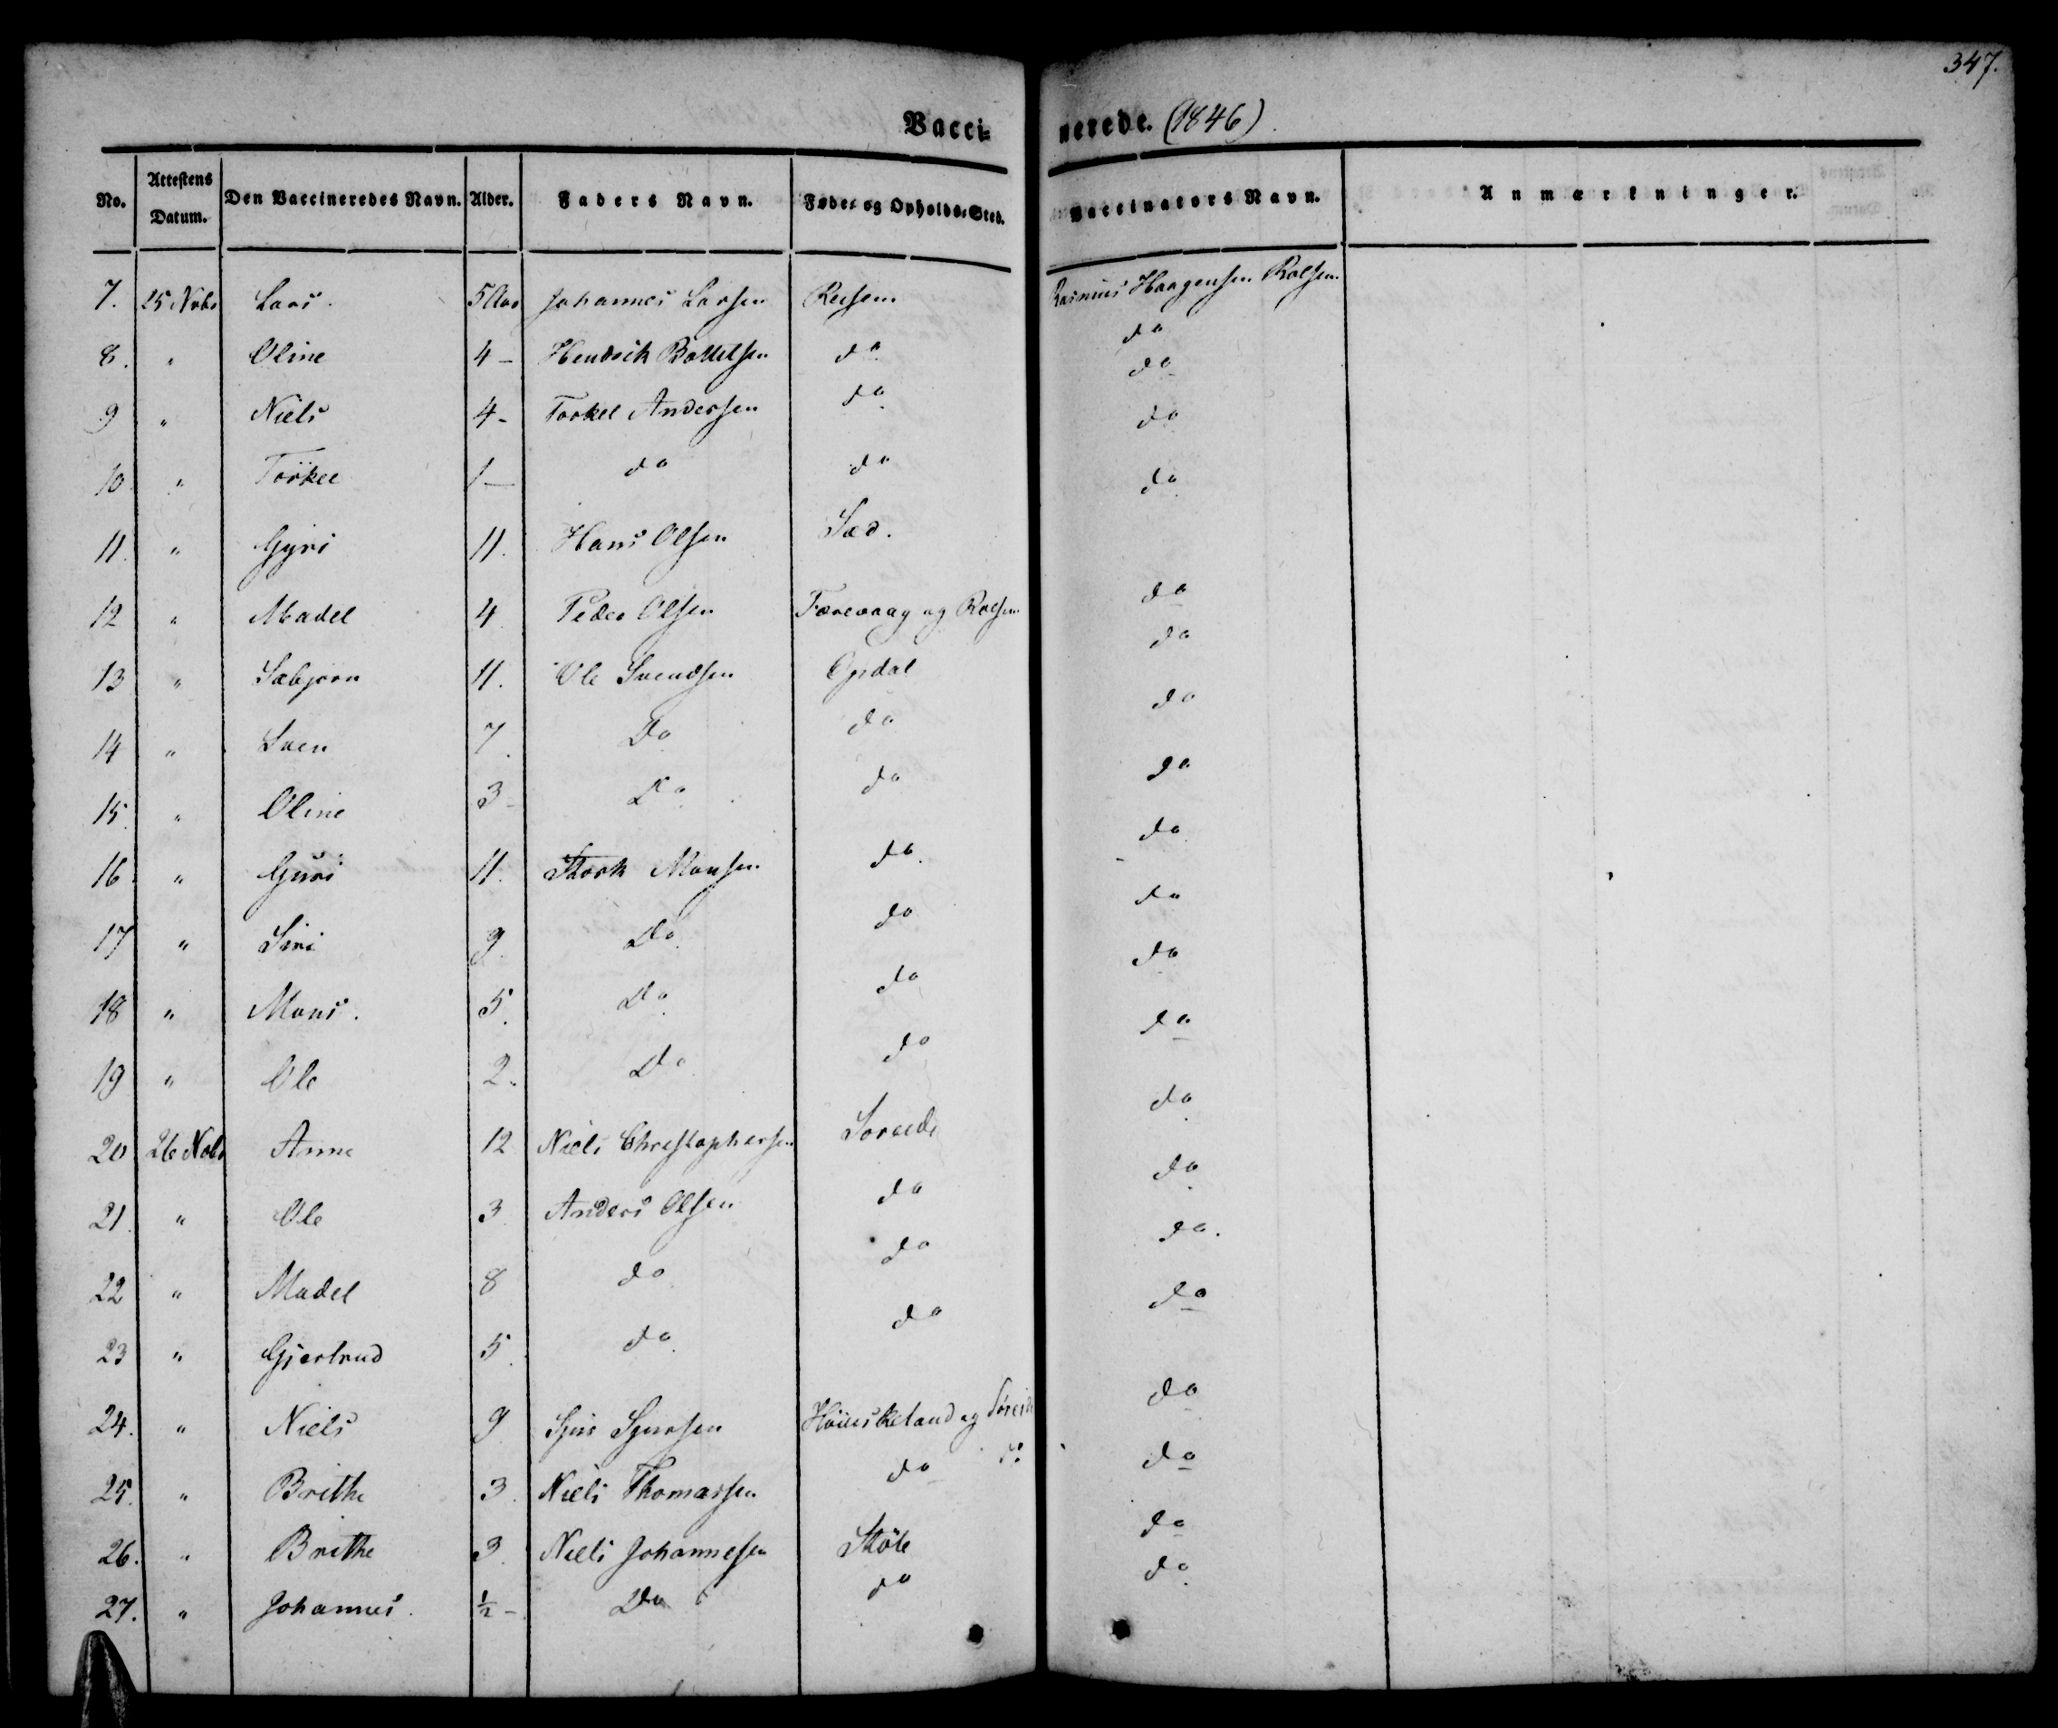 347.
Vaccinerede. (1846)
No. Attestens Datum. Den Vaccineredes Navn. Alder. Faders Navn. Føde- og Opholds-Sted. Vaccinators Navn. Anmærkninger.
7. 25 Novbr Lars. 5 Aar Johannes Larsen Reisem Rasmus Haagensen Rolsen.
8. " Oline 4 - Hendrik Bottelsen do do
9 " Niels 4 - Torkel Andersen do do
10 " Torkel 1 - do do do
11. " Gyri 11. Hans Olsen Sæd. do
12 " Madel 4 Peder Olsen Færevaag og Rolsen do
13 " Sæbjørn 11. Ole Svendsen Opdal do
14 " Sven 7. Do do do
15. " Oline 3 - Do do do
16. " Guri 11. Stork Monsen do do
17 " Siri 9. Do do do
18 " Mons. 5. Do do do
19 " Ole 2. Do do do
20 26 Novbr Anne 12 Niels Christophersen Soreide do
21. " Ole 3 Anders Olsen do do
22 " Madel 8 do do do.
23 " Gjertrud 5. do do do
24. " Niels 9 Sjur Sjursen Høiesketand og Søreide do
25. " Brithe 3. Niels Thomassen do do do
26. " Brithe 3. Niels Johannesen Støle do
27. " Johannes. ½ - Do do do